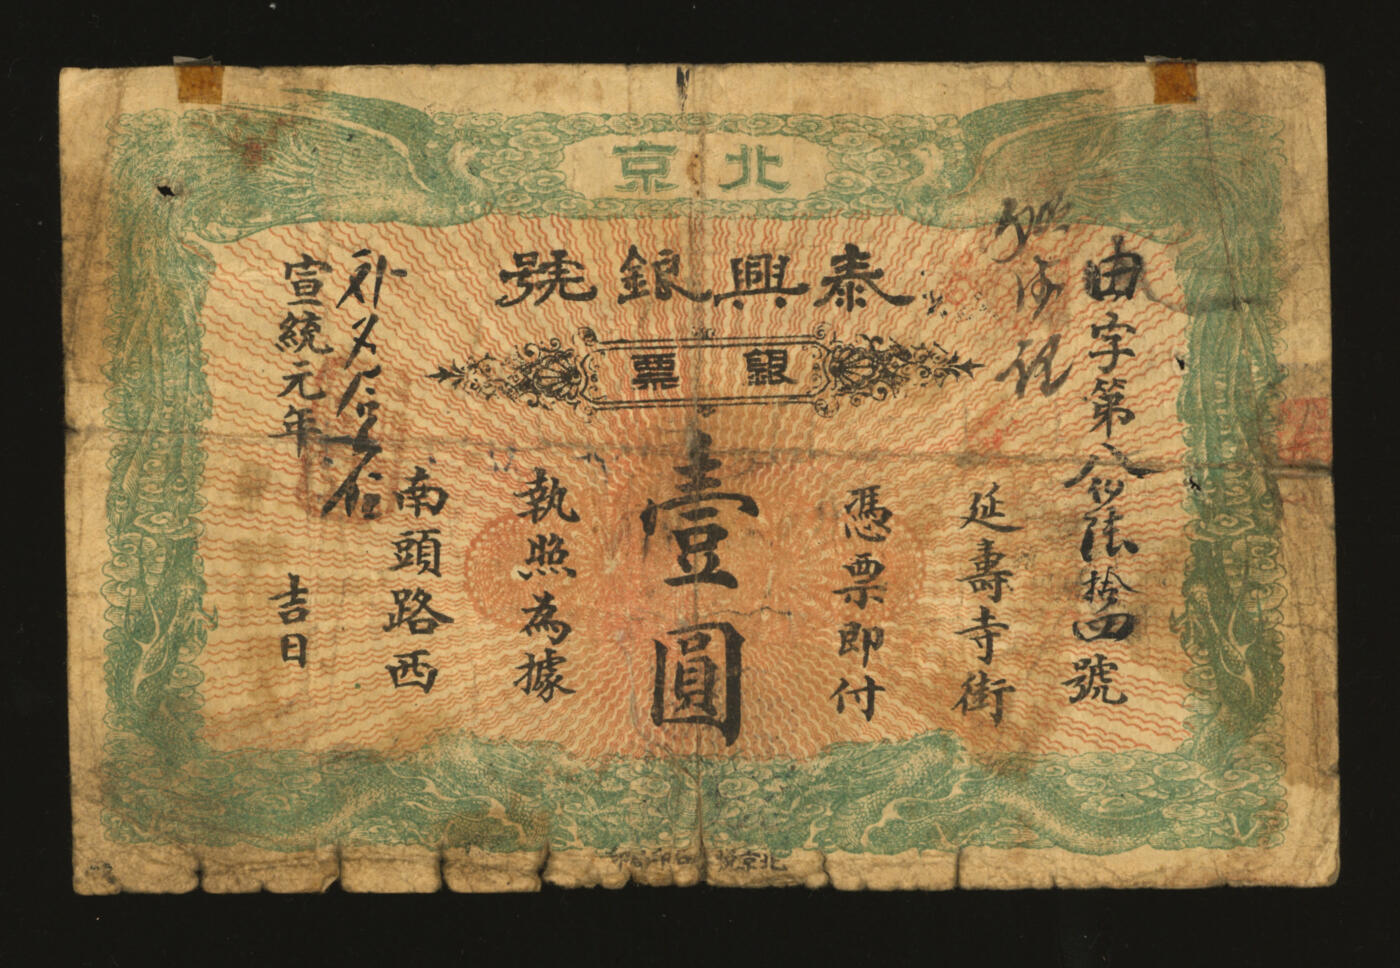 北京
泰興銀號
銀票
由字第八佰陸拾四號
延壽寺街
憑票即付
壹圓
執照為據
南頭路西
宣統元年
吉日